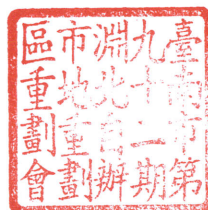 臺南市第
九十二期
淵北自辦
市地重劃
區重劃會